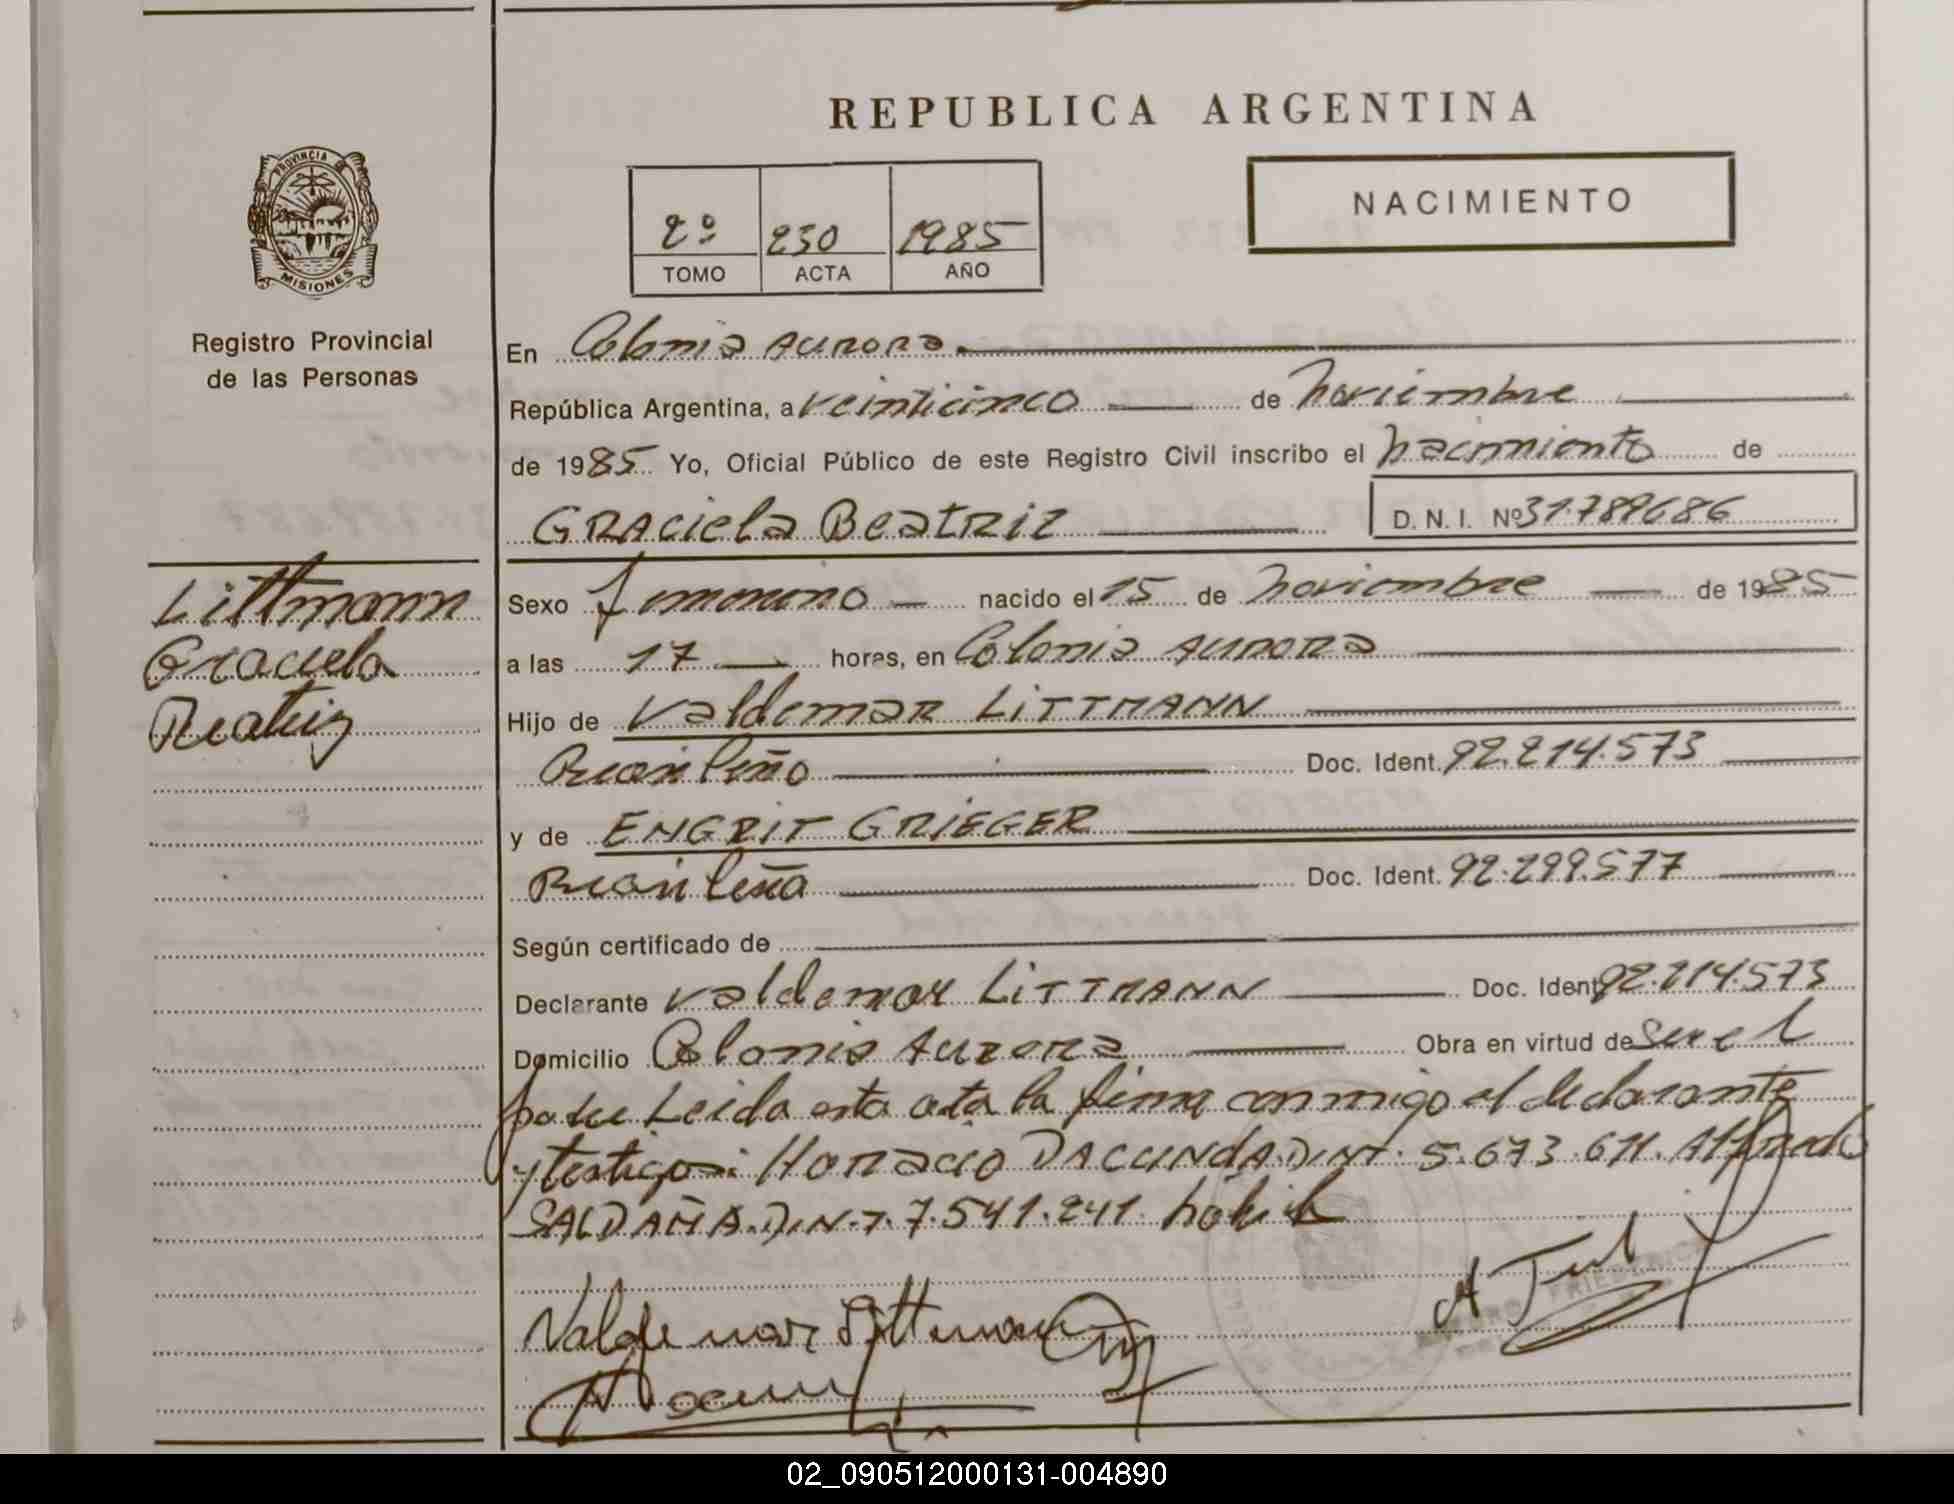 REPUBLICA ARGENTINA
NACIMIENTO
2º 230 1985
TOMO ACTA AÑO
PROVINCIA DE
MISIONES
Registro Provincial
de las Personas
Littmann
Graciela
Beatriz
En Colonia Aurora
República Argentina, a veinticinco de noviembre
de 1985 Yo, Oficial Público de este Registro Civil inscribo el nacimiento de
GRACIELA BEATRIZ D. N. I. Nº 31.789686
Sexo femenino nacido el 15 de noviembre de 1985
a las 17 horas, en Colonia Aurora
Hijo de Valdemar LITTMANN
Brasileño Doc. Ident. 92.214.573
y de ENGRIT GRIEGER
Brasileña Doc. Ident. 92.299.577
Según certificado de
Declarante Valdemar LITTMANN Doc. Ident. 92.214.573
Domicilio Colonia Aurora Obra en virtud de ser el
padre Leida esta acta la firma conmigo el declarante
y testigos: Horacio DACUNDA D.N.I. 5.673.611. Alfredo
SALDAÑA. D.N.I. 7.541.241. hábil
Valdemar Littmann
02_090512000131-004890